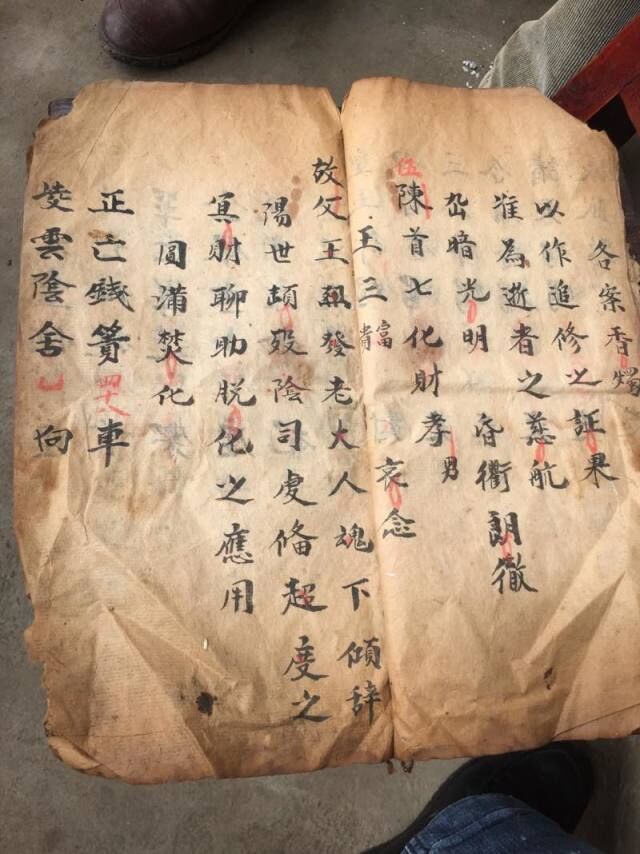 各案香燭
以作追修之証果
為逝者之慈航
暗光明 昏衢朗徹
伍
陳首七化財孝男
王三富貴 哀念
故父王發老大人魂下傾辞
陽世頓歿陰司虔俻超度之
冥財聊助脱化之應用
圓滿焚化
正亡錢四十八車
雲陰舍 向